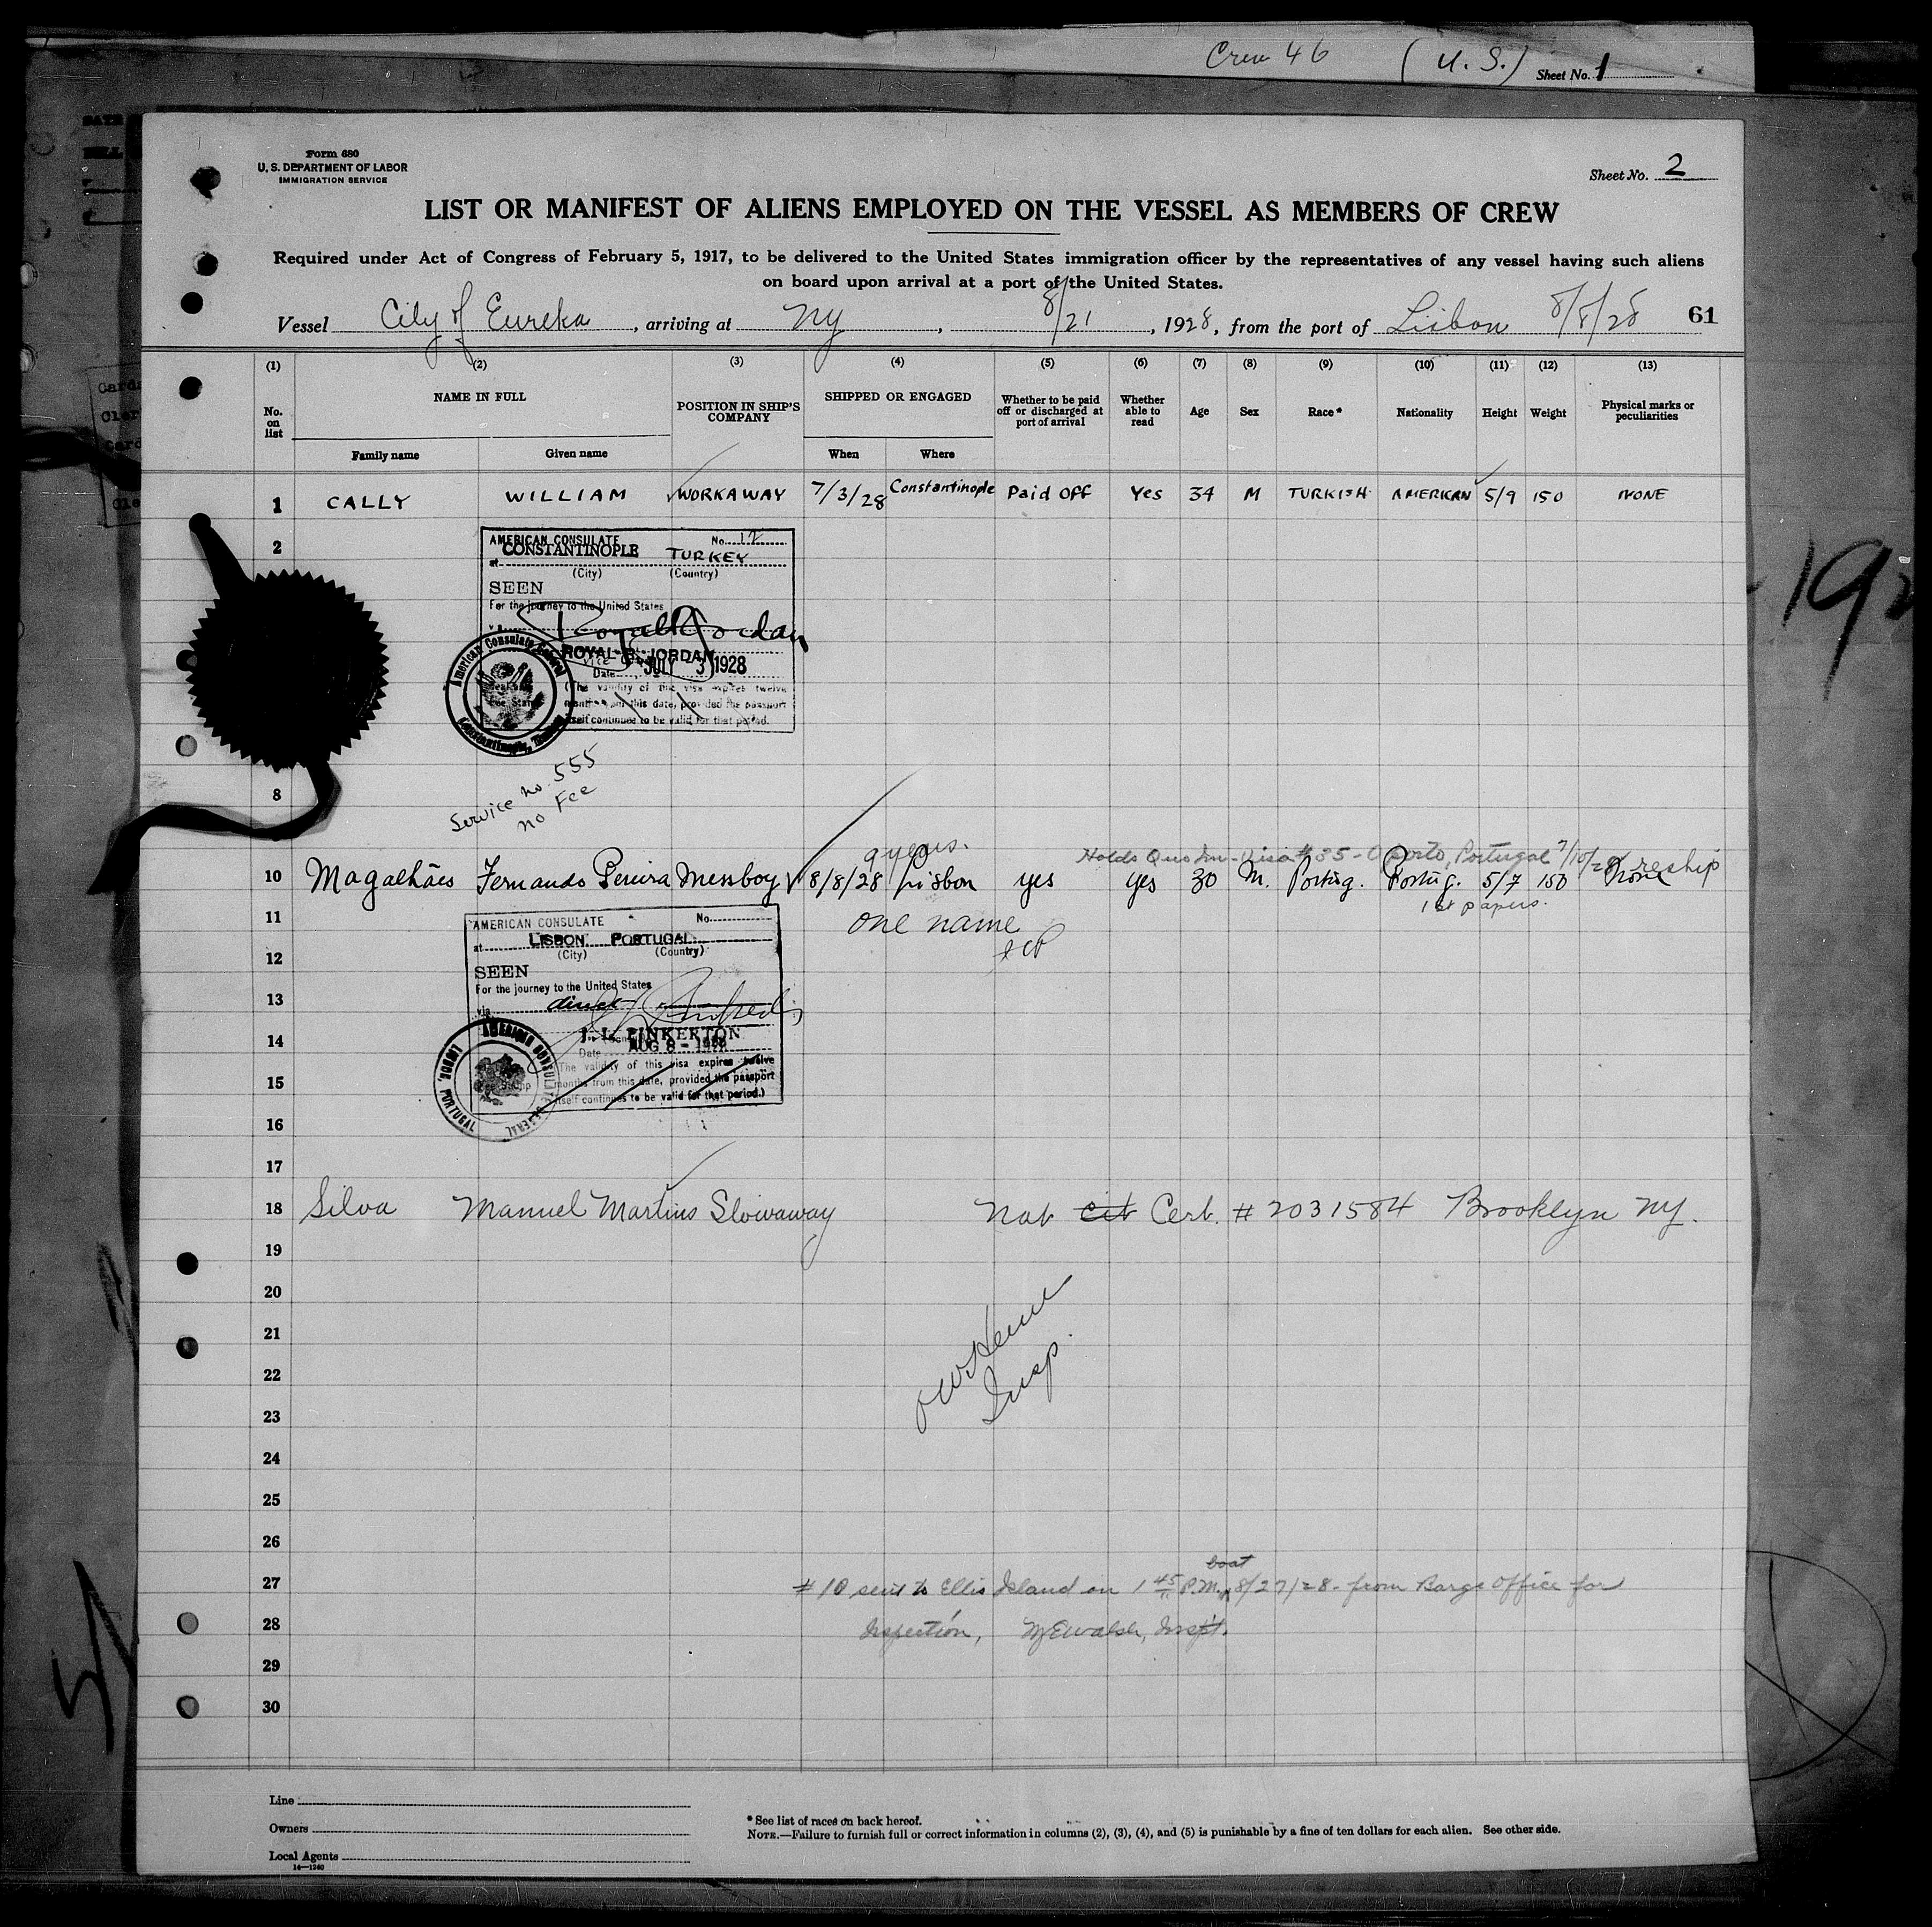 Crew 46 (U. S.) Sheet No. 1
Form 680
U. S. DEPARTMENT OF LABOR
IMMIGRATION SERVICE
Sheet No. 2
LIST OR MANIFEST OF ALIENS EMPLOYED ON THE VESSEL AS MEMBERS OF CREW
Required under Act of Congress of February 5, 1917, to be delivered to the United States immigration officer by the representatives of any vessel having such aliens
on board upon arrival at a port of the United States.
Vessel City of Eureka, arriving at NY, 8/21, 1928, from the port of Lisbon 8/8/28 61
(1) (2) (3) (4) (5) (6) (7) (8) (9) (10) (11) (12) (13)
No. on list NAME IN FULL POSITION IN SHIP'S COMPANY SHIPPED OR ENGAGED Whether to be paid off or discharged at port of arrival Whether able to read Age Sex Race* Nationality Height Weight Physical marks or peculiarities
Family name Given name When Where
1 CALLY WILLIAM WORKAWAY 7/3/28 Constantinople Paid OFF Yes 34 M TURKISH AMERICAN 5/9 150 NONE
2
AMERICAN CONSULATE No. 12
at CONSTANTINOPLE TURKEY
(City) (Country)
SEEN
For the journey to the United States
via Royal R Jordan
ROYAL R. JORDAN
Date JULY 3 1928
(The validity of this visa expires twelve
months from this date, provided the passport
itself continues to be valid for that period.
American Consulate General
Constantinople, Turkey
Service no. 555
no Fee
8
9 years.
Holds Quo Im-Visa #35 - Oporto, Portugal 7/10/28
10 Magalhães Fernando Pereira Messboy 8/8/28 Lisbon yes yes 30 M. Portug. Portug. 5/7 150 None
1st papers.
11 one name
AMERICAN CONSULATE No.
at LISBON PORTUGAL
(City) (Country)
12
SEEN
For the journey to the United States
13
via direct
14
J. L. PINKERTON
Date AUG 8 - 1928
(The validity of this visa expires twelve
15
months from this date, provided the passport
itself continues to be valid for that period.)
AMERICAN CONSULATE GENERAL
LISBON, PORTUGAL
16
17
18 Silva Manuel Martins Stowaway Nat cit Cert. # 2031584 Brooklyn NY.
19
20
21
22
Insp.
23
24
25
26
boat
27 #10 sent to Ellis Island on 1 45 P.M. 8/27/28 - from Barge Office for
28 Inspection, Walsh, Inspt.
29
30
Line
Owners
Local Agents
14—1240
* See list of races on back hereof.
NOTE.—Failure to furnish full or correct information in columns (2), (3), (4), and (5) is punishable by a fine of ten dollars for each alien. See other side.